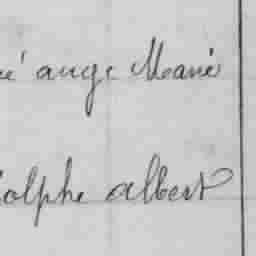 ange Marie
olphe albert